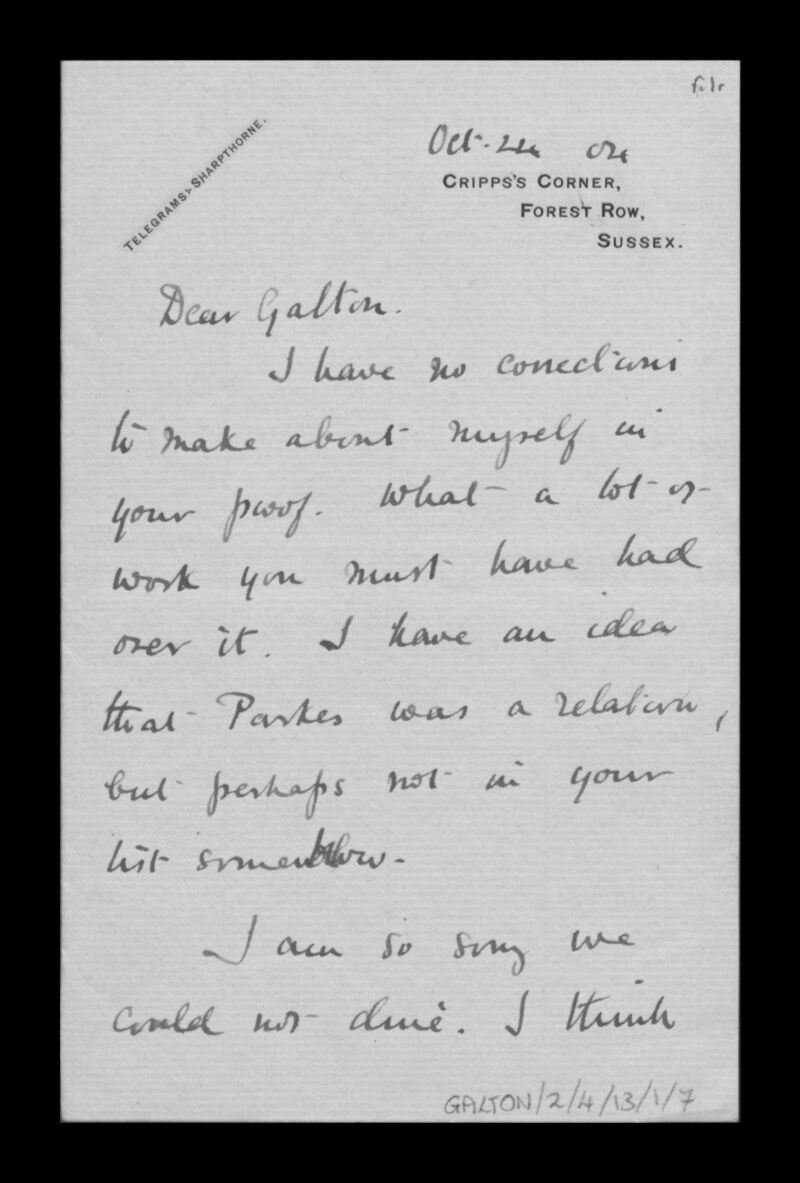 file
TELEGRAMS:- SHARPTHORNE.
Oct. 24 04
CRIPPS'S CORNER,
FOREST ROW,
SUSSEX.
Dear Galton.
I have no corrections
to make about myself in
your proof. What a lot of
work you must have had
over it. I have an idea
that Parkes was a relation,
but perhaps not in your
list somehow.
I am so sorry we
could not dine. I think
GALTON/2/4/13/1/7